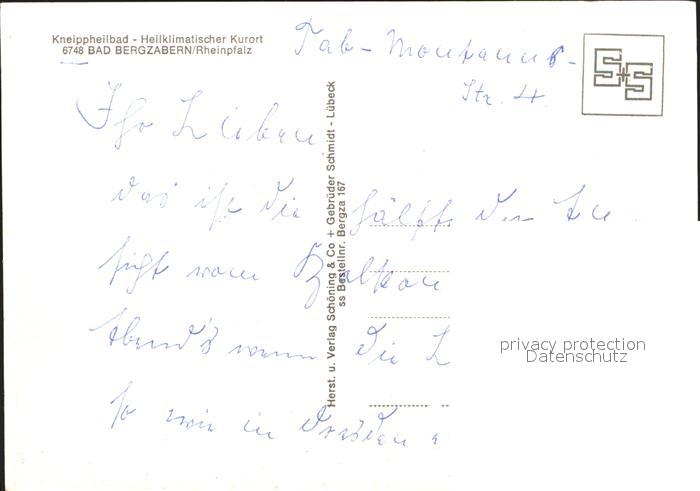 Kneippheilbad - Heilklimatischer Kurort
6748 BAD BERGZABERN/Rheinpfalz
Tab-Montanus-
Str. 4.
S+S
Ihr Lieben
das ist die Hälfte der An
sicht vom Balkon
Abend's wenn die L
so wie in Dresden
Herst. u. Verlag Schöning & Co + Gebrüder Schmidt - Lübeck
ss Bestellnr. Bergza 167
privacy protection
Datenschutz